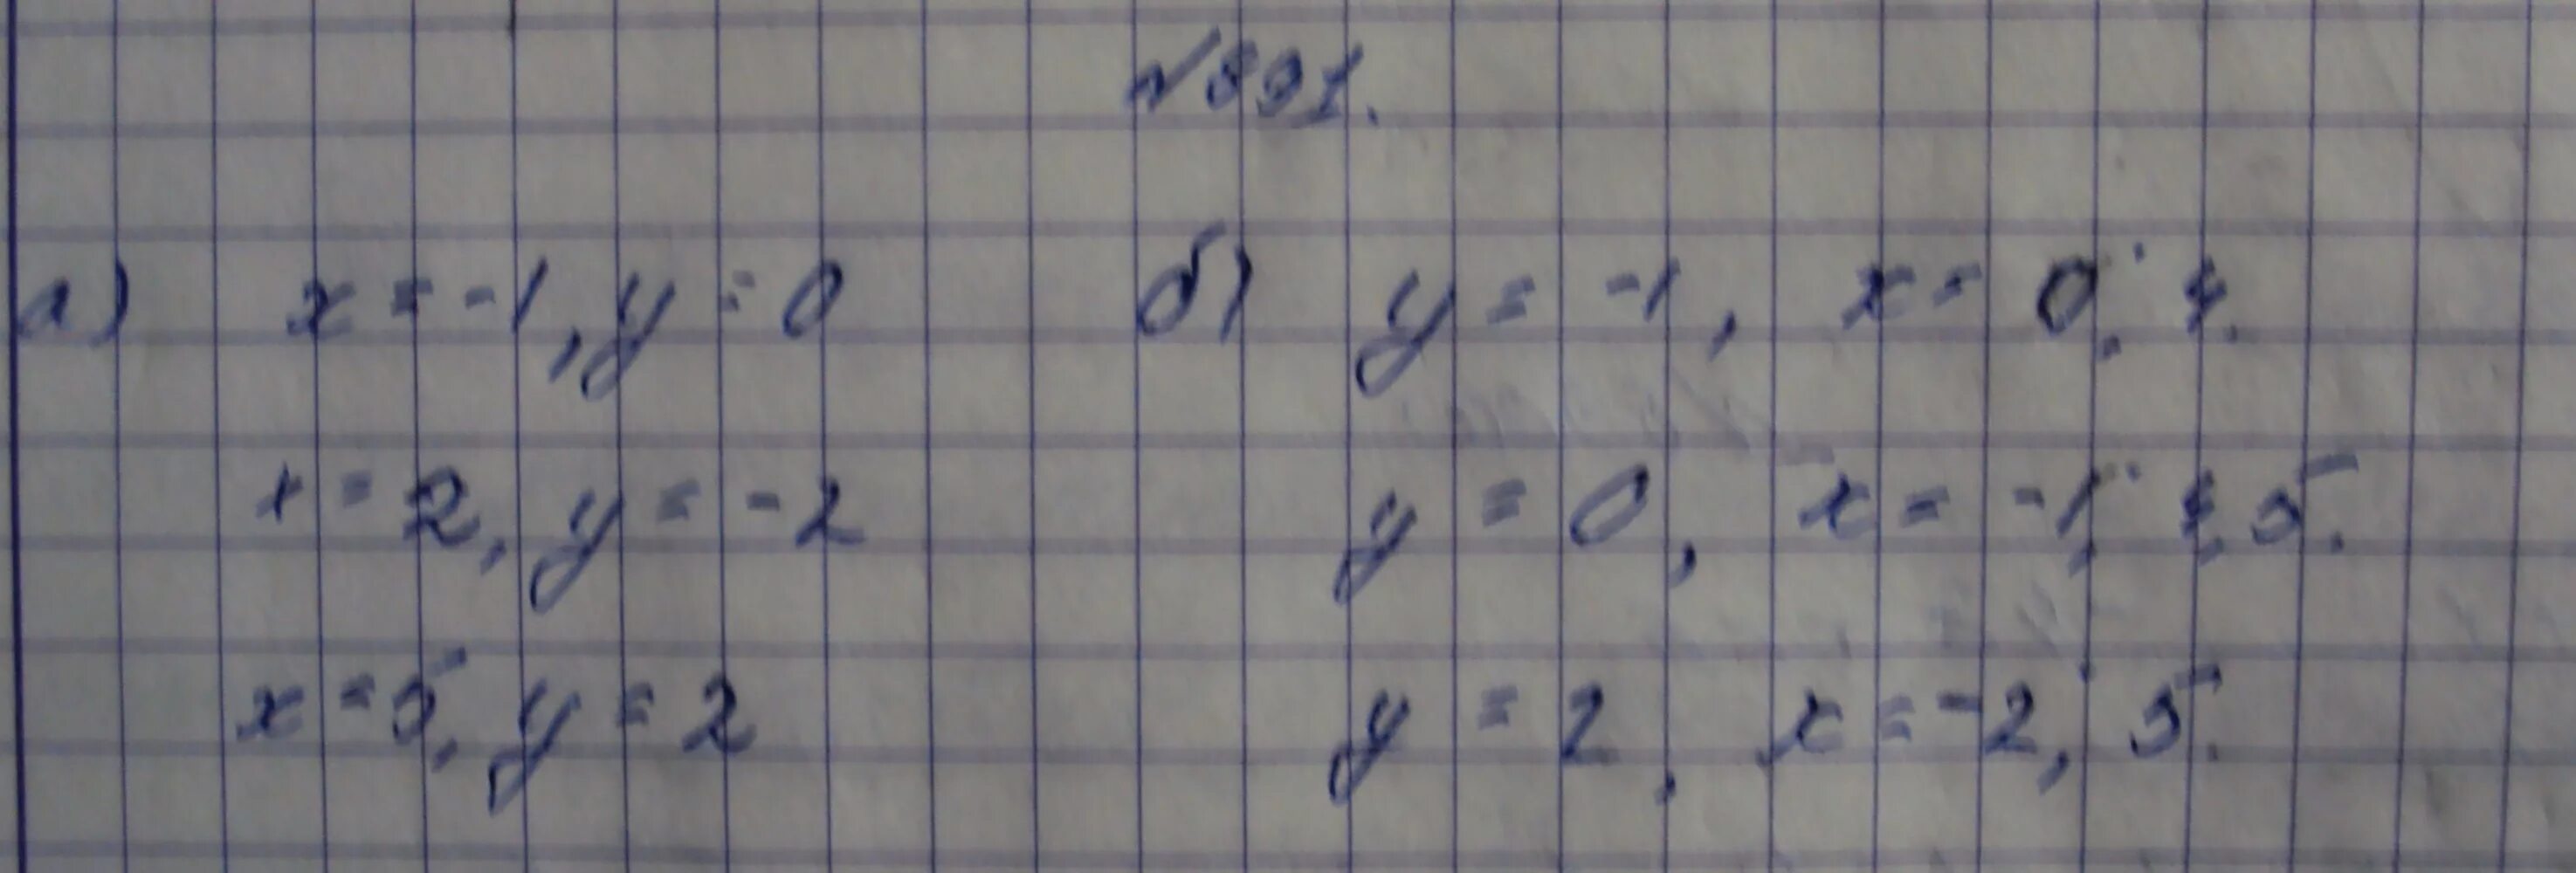 №891.
а) x = -1, y = 0 б) y = -1, x = 0; 4.
x = 2, y = -2 y = 0, x = -1; 4; 5.
x = 5, y = 2 y = 2, x = -2; 5.